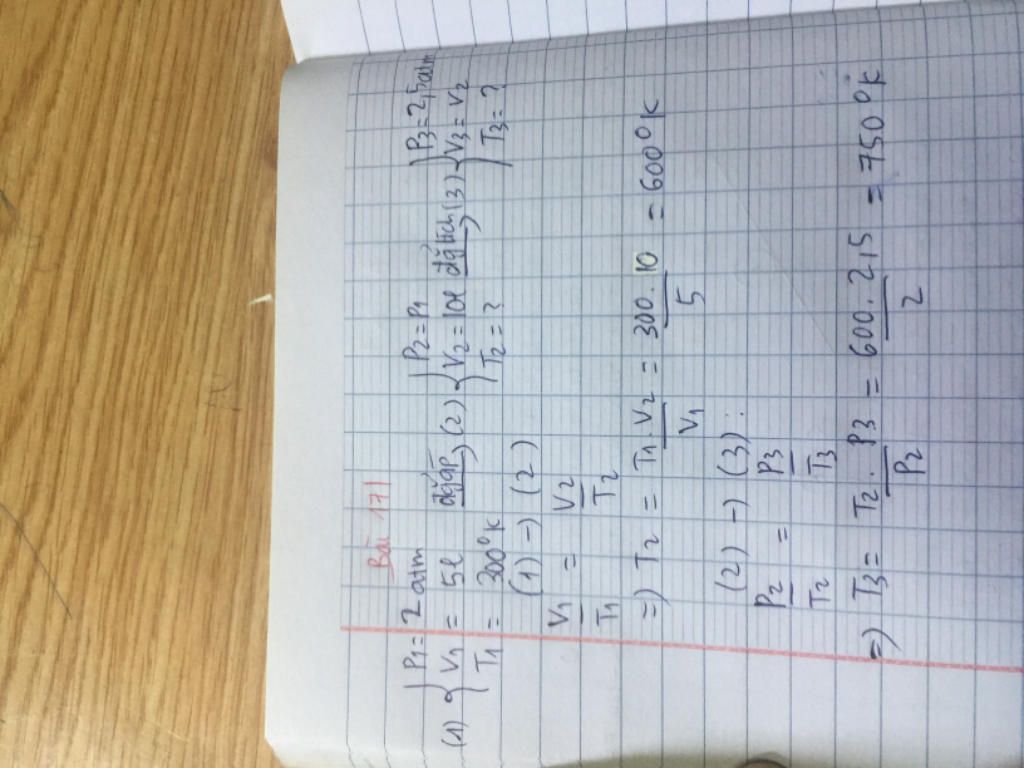 Bài 171
(1) { P1 = 2 atm
V1 = 5l
T1 = 300°K
đẳng áp (2) { P2 = P1
V2 = 10l
T2 = ?
đẳng tích (3) { P3 = 2,5atm
V3 = V2
T3 = ?
(1) -> (2)
V1/T1 = V2/T2
=> T2 = T1.V2/V1 = 300.10/5 = 600°K
(2) -> (3):
P2/T2 = P3/T3
=> T3 = T2.P3/P2 = 600.2,5/2 = 750°K